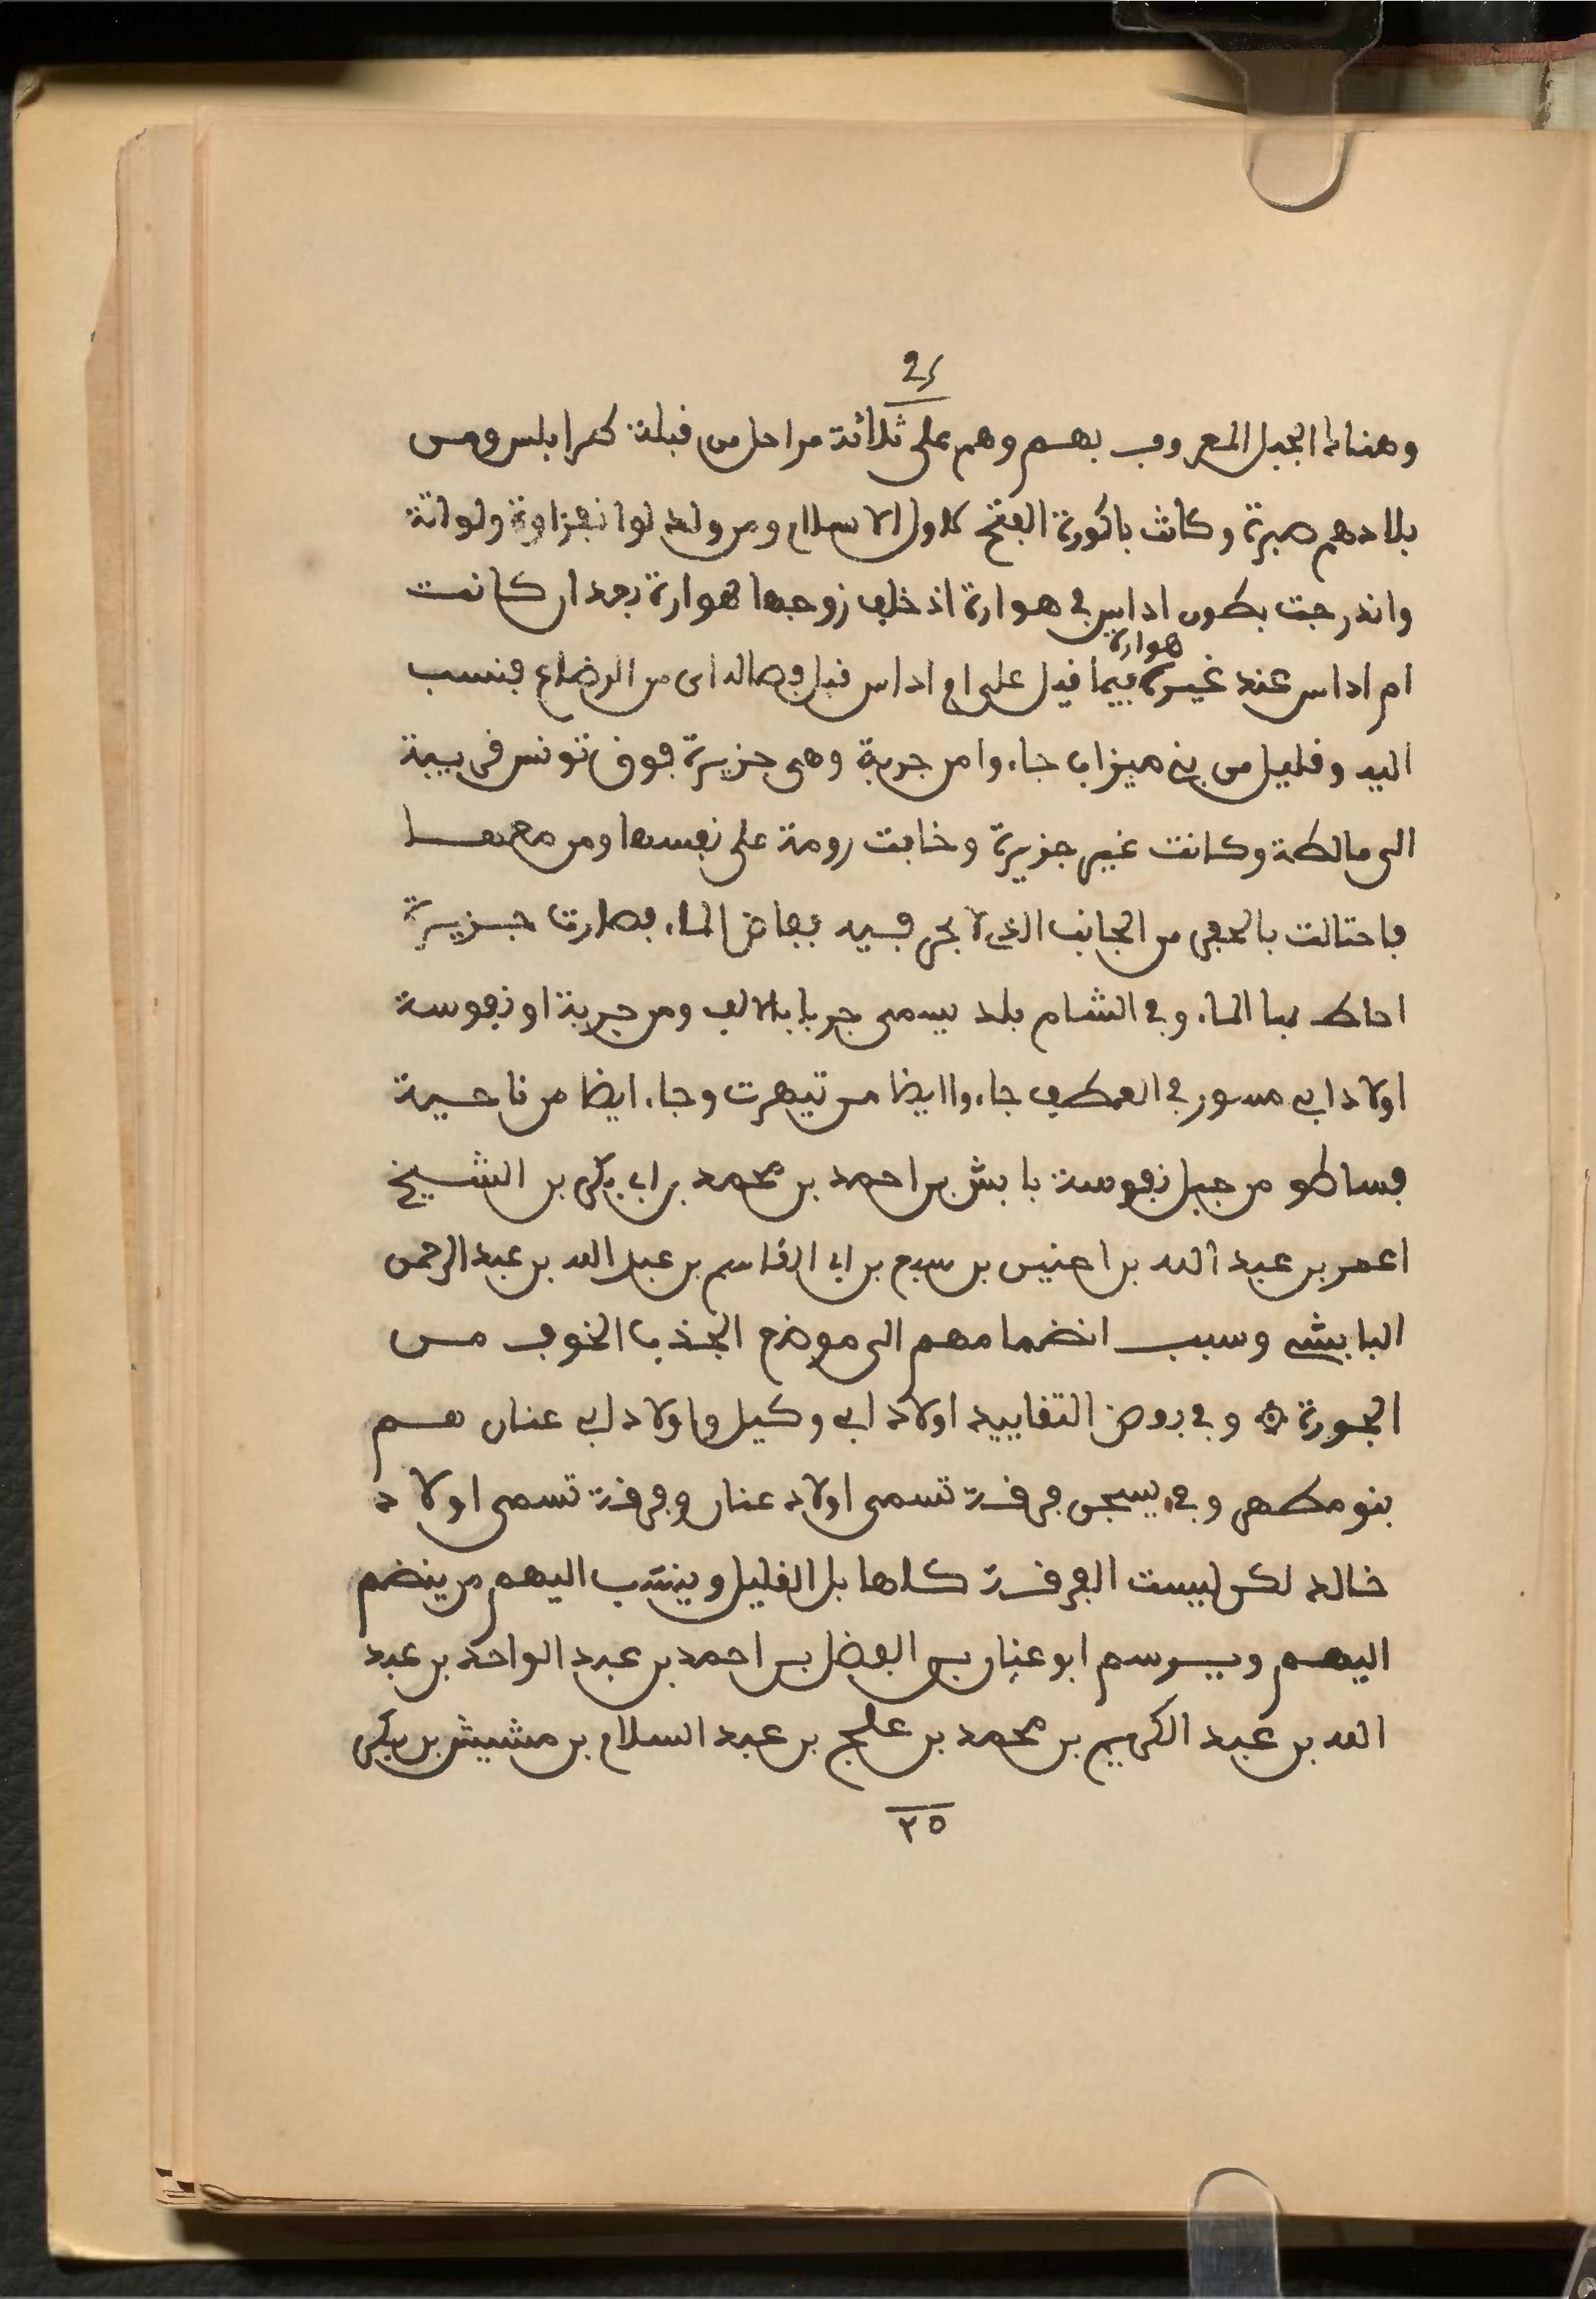 25
وهناك الجبل المعروف بهم وهم على ثلاثة مراحل من قبلة طرابلس ومن
بلادهم صبرة وكانت باكورة الفتح لاول الاسلام ومن ولد لوا نفزاوة ولواتة
واندرجت بطون اداس في هوارة اذ خلف زوجها هوارة بعد ان كانت
هوارة
ام اداس عند غيره فيما قيل على ام اداس قبل فصاله اى من الرضاع فنسب
اليه وقليل من بني ميزاب جاءوا من جربة وهى جزيرة فوق تونس قريبة
الى مالطة وكانت غير جزيرة وخافت رومة على نفسها ومن معها
فاحتالت بالحفر من الجانب الذى لا بحر فيه ففاض الماء فصارت جزيرة
احاط بها الماء وفي الشام بلد يسمى جربا بالالف ومن جربة او نفوسة
اولاد ابي مسور في العطف جاءوا ايضا من تيهرت وجاء ايضا من ناحية
فساطو من جبل نفوسة با بش بن احمد بن محمد بن ابي بكر بن الشيخ
اعمر بن عبد الله بن اعنيس بن سبع بن ابي القاسم بن عبد الله بن عبد الرحمن
البابشى وسبب انضمامهم الى موضع الجذب الخوف من
الجورة ۞ وفي روض التقاييد اولاد ابي وكيل واولاد ابي عنان هم
بنو مطهر وفي يسجن فرقة تسمى اولاد عنان وفرقة تسمى اولاد
خالد لكن ليست الفرقة كلها بل القليل وينتسب اليهم من ينضم
اليهم ويرسم ابو عنان بن الفضل بن احمد بن عبد الواحد بن عبد
الله بن عبد الكريم بن محمد بن علج بن عبد السلام بن مشيش بن بكر
٢٥